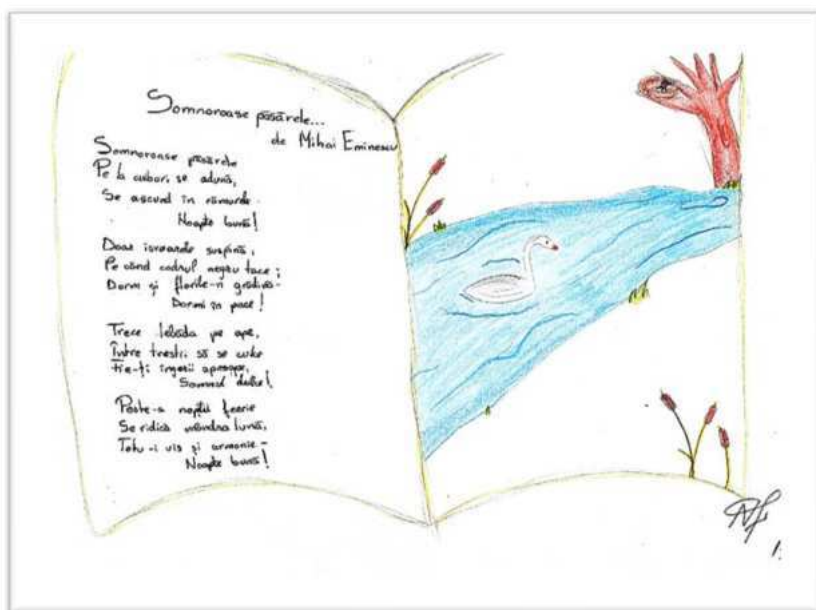 Somnoroase păsărele...
de Mihai Eminescu
Somnoroase păsărele
Pe la cuiburi se adună,
Se ascund în rămurele -
Noapte bună!
Doar isvoarele suspină,
Pe când codrul negru tace;
Dorm și florile-n grădină-
Dormi în pace!
Trece lebăda pe ape,
Între trestii să se culce
Fie-ți îngerii aproape,
Somnul dulce!
Peste-a nopții feerie
Se ridică mândra lună,
Totu-i vis și armonie-
Noapte bună!